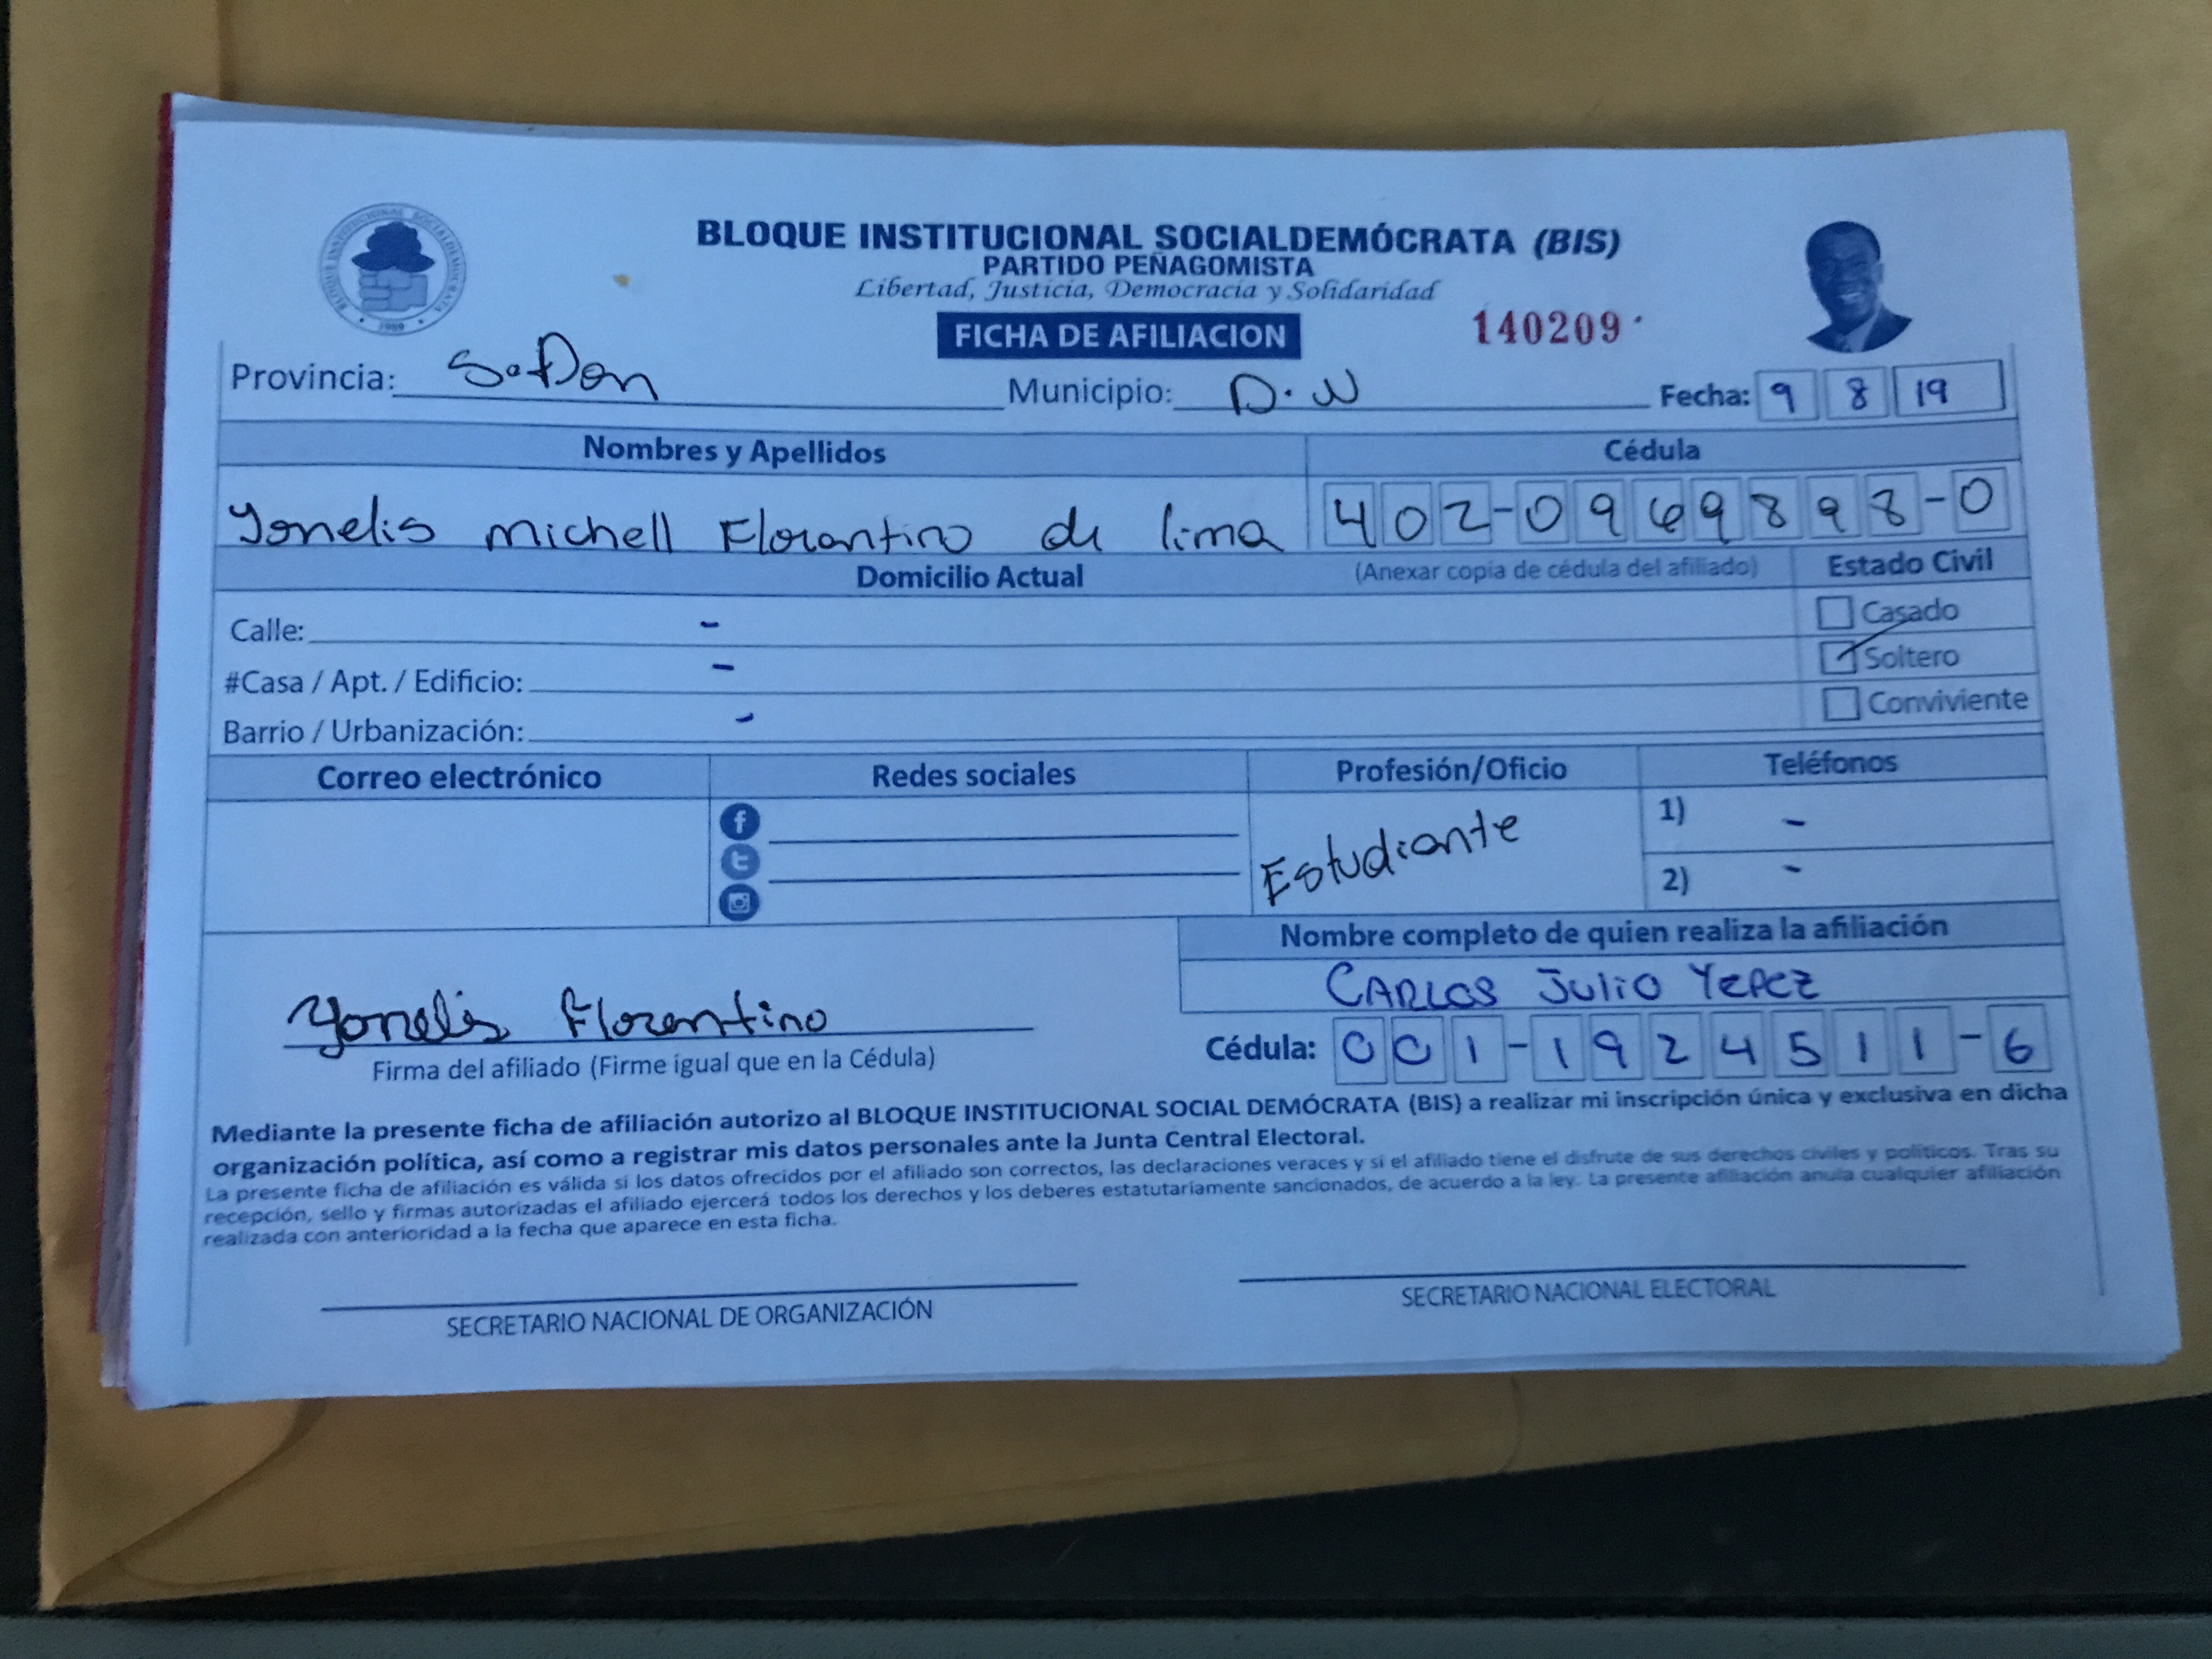 BLOQUE INSTITUCIONAL SOCIALDEMÓCRATA
1989
BLOQUE INSTITUCIONAL SOCIALDEMÓCRATA (BIS)
PARTIDO PEÑAGOMISTA
Libertad, Justicia, Democracia y Solidaridad
FICHA DE AFILIACION
140209
Provincia: Sto Dom Municipio: D.N Fecha: 9 8 19
Nombres y Apellidos Cédula
Yonelis Michell Florentino de lima 402-0969898-0
Domicilio Actual (Anexar copia de cédula del afiliado) Estado Civil
Calle: - Casado
#Casa / Apt. / Edificio: - Soltero
Barrio / Urbanización: - Conviviente
Correo electrónico Redes sociales Profesión/Oficio Teléfonos
Estudiante
1) -
2) -
Nombre completo de quien realiza la afiliación
CARLOS Julio YEPEZ
Yonelis Florentino
Cédula: 001-1924511-6
Firma del afiliado (Firme igual que en la Cédula)
Mediante la presente ficha de afiliación autorizo al BLOQUE INSTITUCIONAL SOCIAL DEMÓCRATA (BIS) a realizar mi inscripción única y exclusiva en dicha
organización política, así como a registrar mis datos personales ante la Junta Central Electoral.
La presente ficha de afiliación es válida si los datos ofrecidos por el afiliado son correctos, las declaraciones veraces y si el afiliado tiene el disfrute de sus derechos civiles y políticos. Tras su
recepción, sello y firmas autorizadas el afiliado ejercerá todos los derechos y los deberes estatutariamente sancionados, de acuerdo a la ley. La presente afiliación anula cualquier afiliación
realizada con anterioridad a la fecha que aparece en esta ficha.
SECRETARIO NACIONAL DE ORGANIZACIÓN SECRETARIO NACIONAL ELECTORAL